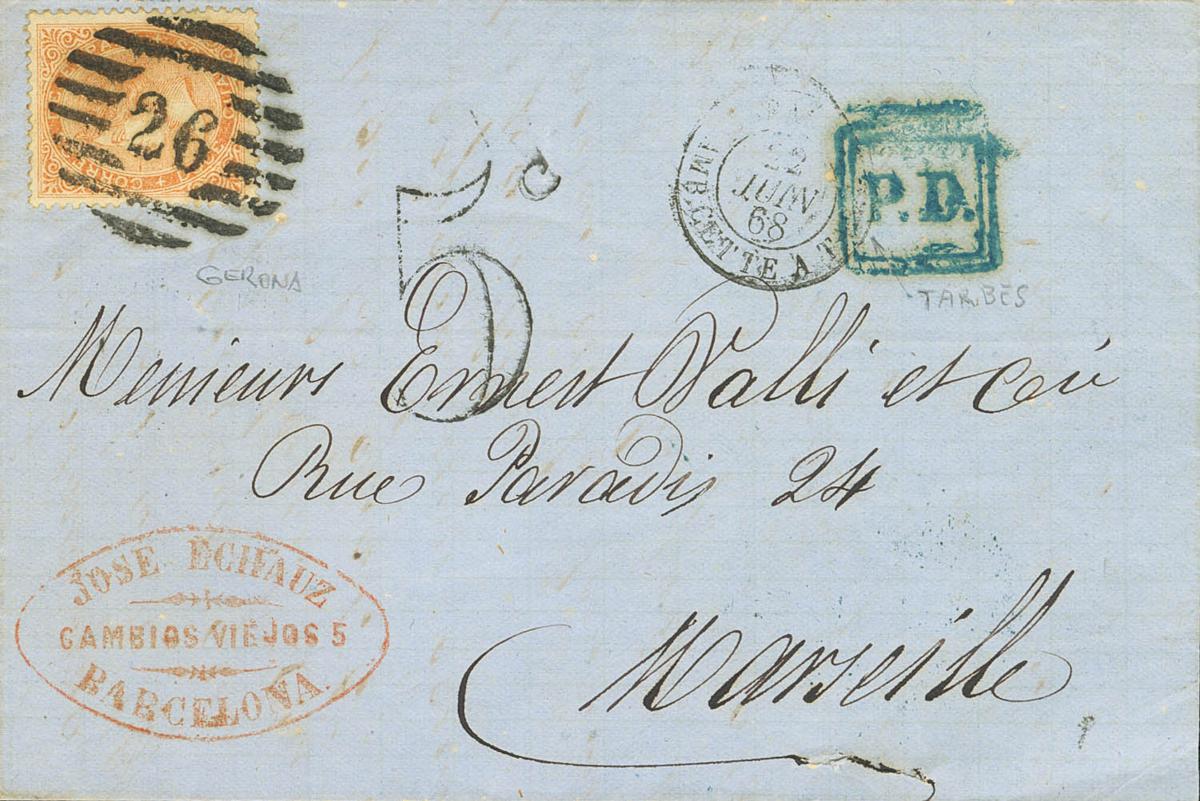 26
5 c
22
JUIN
68
IMP. CETTE A T
P.D.
GERONA
TARBES
Messieurs Ernest Valli et Cie
Rue Paradis 24
Marseille
JOSE ECHAUZ
CAMBIOS VIEJOS 5
BARCELONA